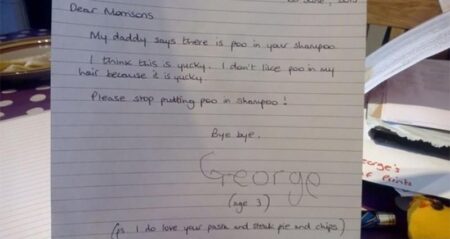 Dear Morrisons
My daddy says there is poo in your shampoo
I think this is yucky. I don't like poo in my
hair because it is yucky
Please stop putting poo in shampoo!
Bye bye.
George
(age 3)
(ps. I do love your pasta and steak pie and chips)
orge's